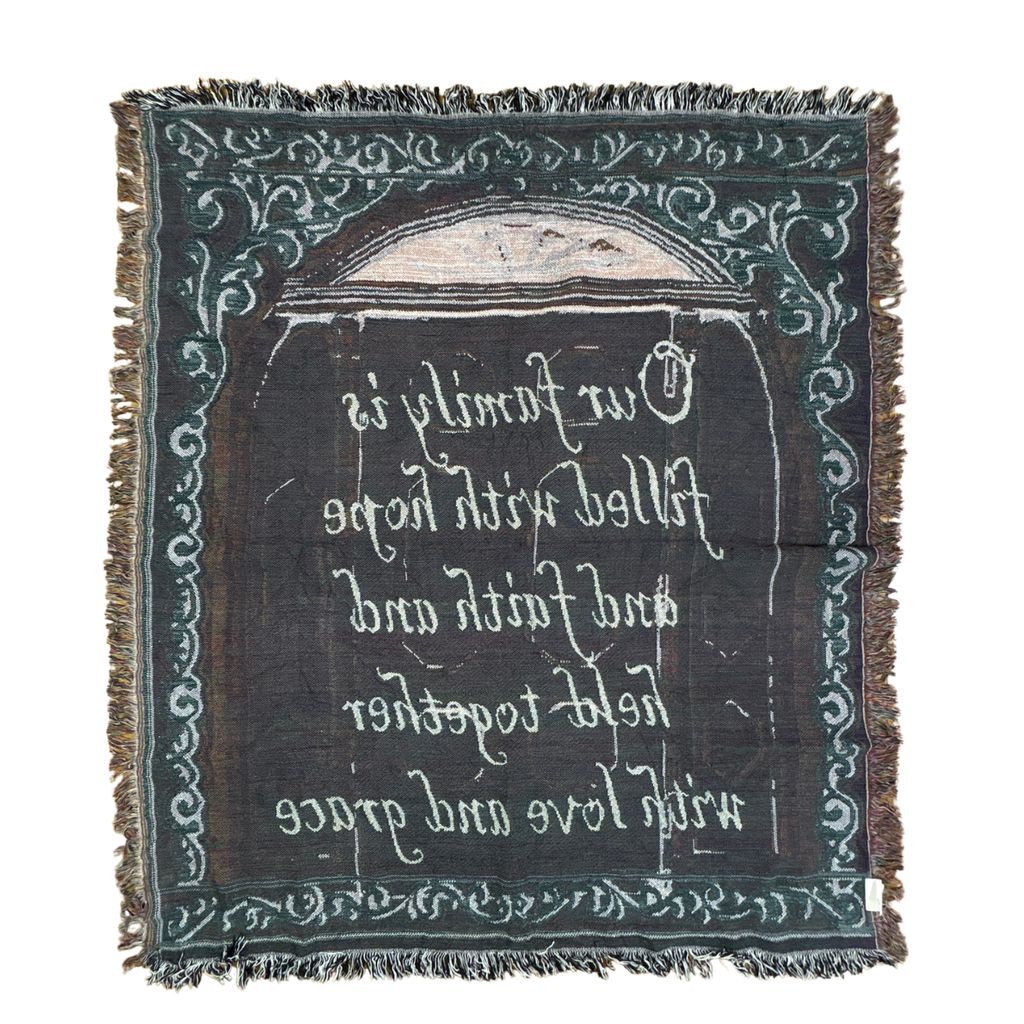 Our family is
filled with hope
and faith and
held together
with love and grace